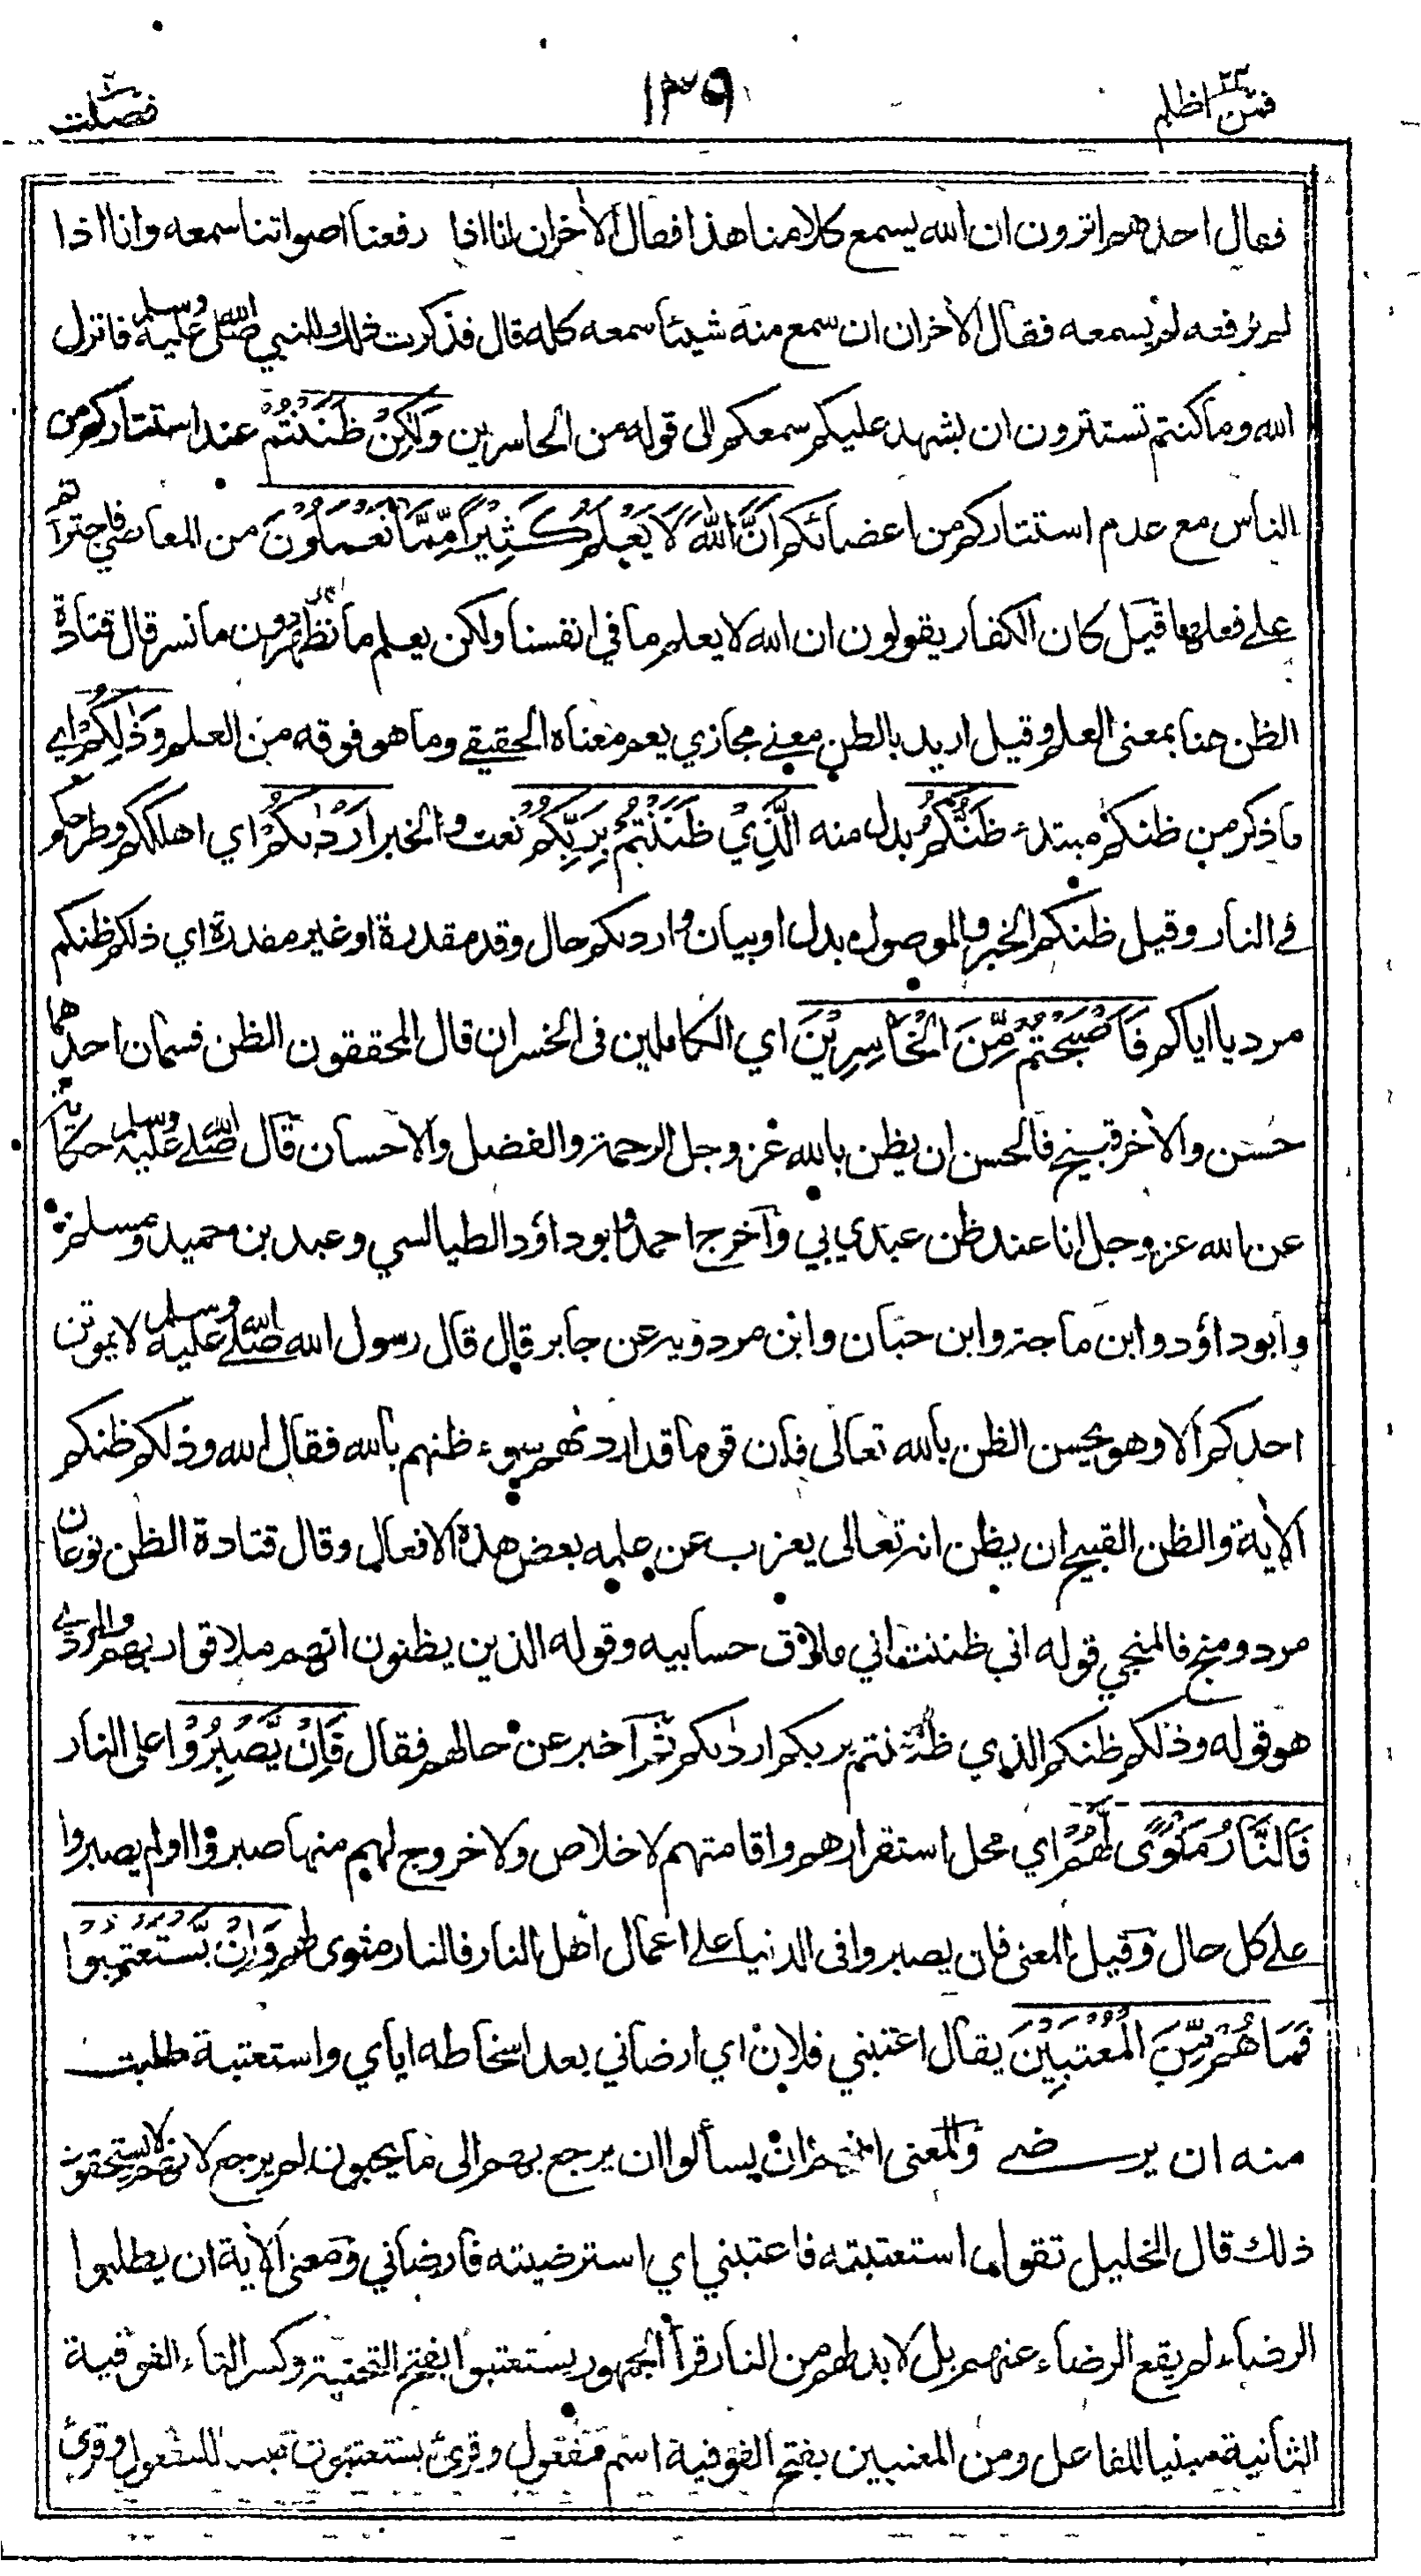 فمن اظلم ٢٤
١٣٩
فصلت
فقال احدهم اترون ان الله يسمع كلامنا هذا فقال الاخران انا اذا رفعنا اصواتنا سمعه وانا اذا
لم نرفعه لم يسمعه فقال الاخران ان سمع منه شيئا سمعه كله قال فذكرت ذلك للنبي صلى الله عليه وسلم فانزل
الله وما كنتم تستترون ان يشهد عليكم سمعكم الى قوله من الخاسرين وَلٰكِنْ ظَنَنْتُمْ عند استتاركم من
الناس مع عدم استتاركم من اعضائكم اَنَّ اللّٰهَ لَا يَعْلَمُ كَثِيْرًا مِّمَّا تَعْمَلُوْنَ من المعاصي فاجترأتم
على فعلها قيل كان الكفار يقولون ان الله لا يعلم ما في انفسنا ولكن يعلم ما نظهر دون ما نسر قال قتادة
الظن هنا بمعنى العلم وقيل اريد بالظن معنے مجازي يعم معناه الحقيقے وما هو فوقه من العلم وَذٰلِكُمْ اي
ما ذكر من ظنكم مبتدء ظَنُّكُمُ بدل منه الَّذِيْ ظَنَنْتُمْ بِرَبِّكُمْ نعت والخبر اَرْدٰىكُمْ اي اهلككم وطرحكم
في النار وقيل ظنكم الخبر والموصول بدل او بيان وارداكم حال وقد مقدرة او غير مقدرة اي ذلكم ظنكم
مرديا اياكم فَاَصْبَحْتُمْ مِّنَ الْخَاسِرِيْنَ اي الكاملين في الخسران قال المحققون الظن قسمان احدهما
حسن والآخر قبيح فالحسن ان يظن بالله عز وجل الرحمة والفضل والاحسان قال صلى الله عليه وسلم حكاية
عن الله عز وجل انا عند ظن عبدي بي وآخرج احمد وابو داؤد الطيالسي وعبد بن حميد ومسلم
وابو داؤد وابن ماجة وابن حبان وابن مردويه عن جابر قال قال رسول الله صلى الله عليه وسلم لا يموتن
احدكم الا وهو يحسن الظن بالله تعالى فان قوما قد ارداهم سوء ظنهم بالله فقال الله وذلكم ظنكم
الاٰية والظن القبيح ان يظن انه تعالى يعزب عن علمه بعض هذه الافعال وقال قتادة الظن نوعان
مرد ومنج فالمنجي قوله اني ظننت اني ملاق حسابيه وقوله الذين يظنون انهم ملاقوا ربهم والمردي
هو قوله وذلكم ظنكم الذي ظننتم بربكم ارداكم ثم آخبر عن حالهم فقال فَاِنْ يَّصْبِرُوْا على النار
فَالنَّارُ مَثْوًى لَّهُمْ اي محل استقرارهم واقامتهم لا خلاص ولا خروج لهم منها صبروا او لم يصبروا
على كل حال وقيل المعنى فان يصبروا في الدنيا على اعمال اهل النار فالنار مثوى لهم وَاِنْ يَّسْتَعْتِبُوْا
فَمَا هُمْ مِّنَ الْمُعْتَبِيْنَ يقال اعتبني فلان اي ارضاني بعد اسخاطه اياي واستعتبة طلبت
منه ان يرضے والمعنى انهم ان يسألوا ان يرجع بهم الى ما يحبون لم يرجع لانهم لا يستحقون
ذلك قال الخليل تقول استعتبته فاعتبني اي استرضيته فارضاني ومعنى الآية ان يطلبوا
الرضاء لم يقع الرضاء عنهم بل لا بد لهم من النار قرأ الجمهور يستعتبوا بفتح التحتية وكسر التاء الفوقية
الثانية مبنيا للفاعل ومن المعتبين بفتح الفوقية اسم مفعول وقرئ يستعتبوا مبنيا للمفعول وقرئ